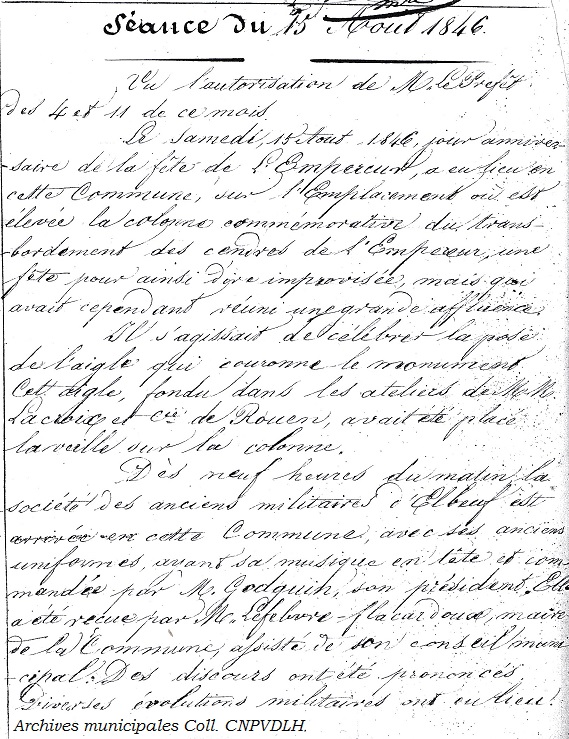 Séance du 15 Août 1846.
Vu l'autorisation de M. Le Préfet
des 4 et 11 de ce mois.
Le Samedi, 15 Aout 1846, jour anniver-
-saire de la fête de L'Empereur, a eu lieu en
cette Commune, sur l'Emplacement où est
élevée la colonne commémorative du trans-
-bordement des cendres de L'Empereur, une
fête pour ainsi dire improvisée, mais qui
avait cependant réuni une grande affluence.
Il s'agissait de célébrer la pose
de l'aigle qui couronne le monument.
Cet aigle, fondu dans les ateliers de M.M.
Lacroix et Cie de Rouen, avait été placé
la veille sur la colonne.
Dès neuf heures du matin la
société des anciens militaires d'Elbeuf est
arrivée en cette Commune, avec ses anciens
uniformes, ayant sa musique en tête et com-
mandée par M. Godquin, son président. Elle
a été reçue par M. Lefebvre-flacurdoux, maire
de la Commune, assisté de son conseil muni
-cipal. Des discours ont été prononcés
Diverses évolutions militaires ont eu lieu.
Archives municipales Coll. CNPVDLH.